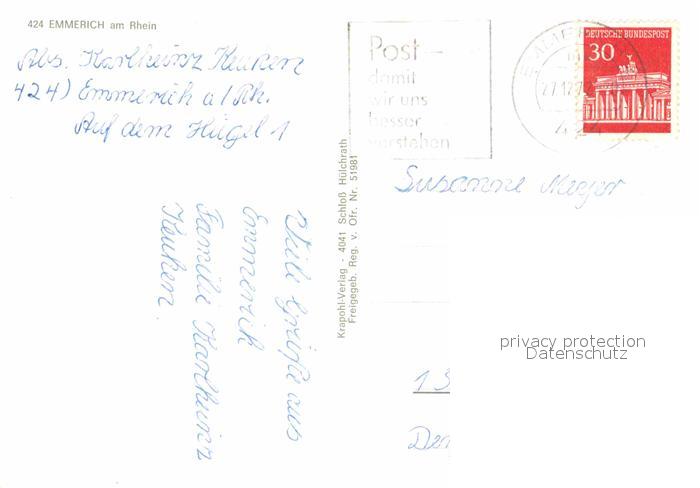 424 EMMERICH am Rhein
Abs. Karlheinz Keuken
424) Emmerich a/Rh.
Auf dem Hügel 1
Post -
damit
wir uns
besser
verstehen
EMMERICH
424
DEUTSCHE BUNDESPOST
30
Susanne Meyer
Viele Grüße aus
Emmerich
Familie Karlheinz
Keuken.
Krapohl-Verlag - 4041 Schloß Hülchrath
Freigegeb. Reg. v. Ofr. Nr. 51981
privacy protection
Datenschutz
13
Den